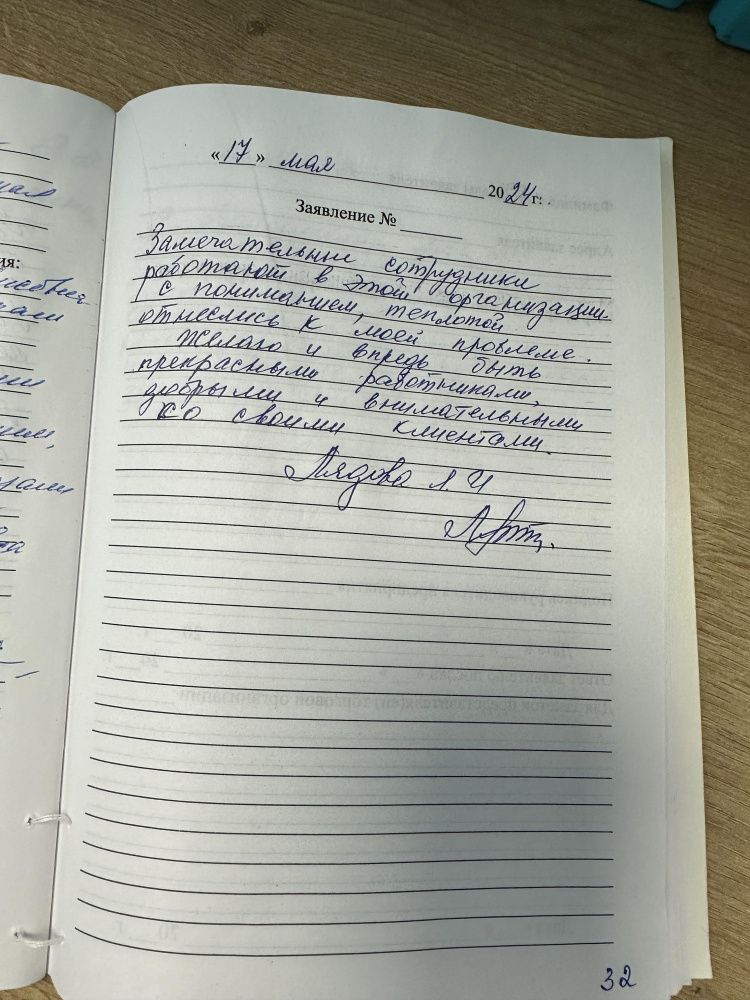 «17» мая 2024г.
Заявление №
Замечательные сотрудники
работают в этой организации.
С пониманием, теплотой
отнеслись к моей проблеме.
Желаю и впредь быть
прекрасными работниками,
добрыми и внимательными
со своими клиентами.
Лядова Л. И
32
ия: